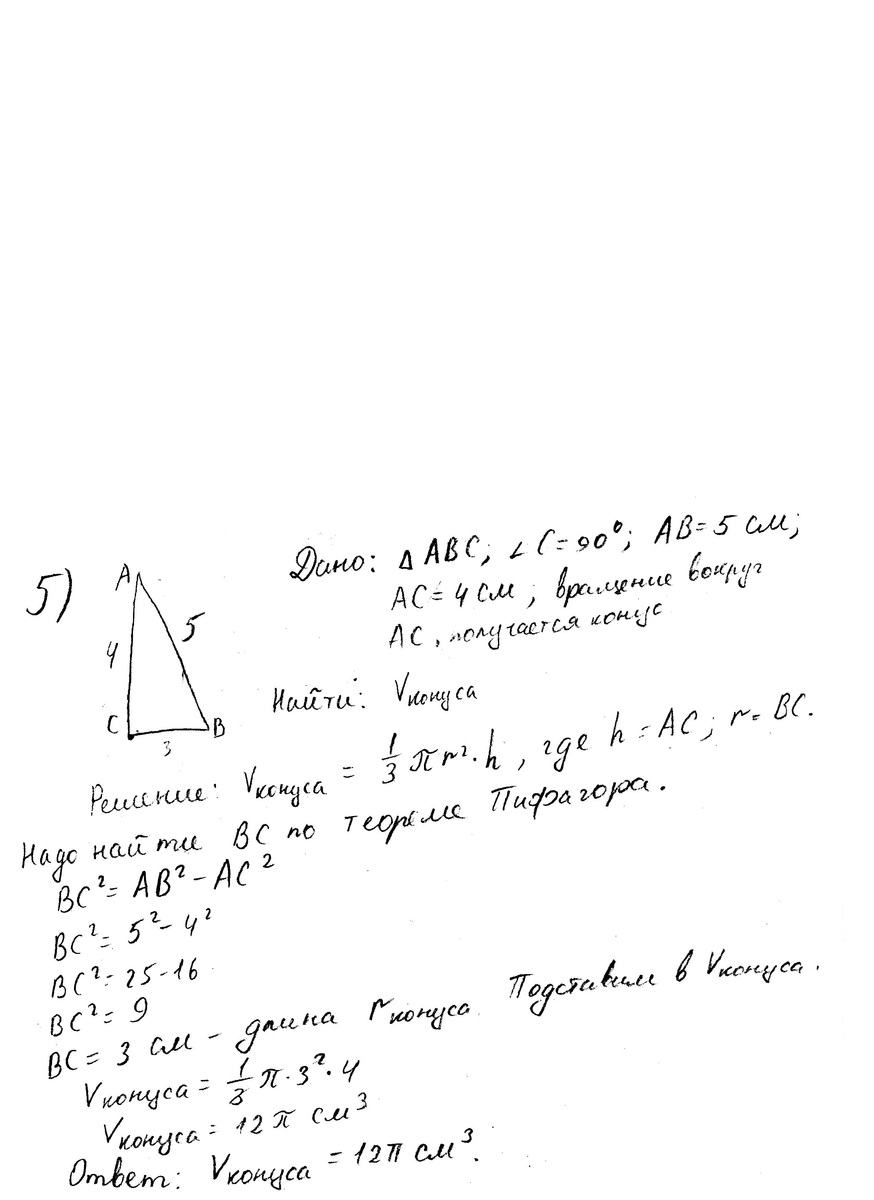 5)
A
4
5
C
B
3
Дано: Δ ABC; ∠C=90°; AB=5 см;
AC=4 см; вращение вокруг
AC, получается конус
Найти: Vконуса
Решение: Vконуса = 1/3 πr²·h, где h=AC; r=BC.
Надо найти BC по теореме Пифагора.
BC²=AB²-AC²
BC²=5²-4²
BC²=25-16
BC²=9
BC=3 см - длина rконуса. Подставим в Vконуса.
Vконуса=1/3 π·3²·4
Vконуса=12π см³
Ответ: Vконуса=12π см³.